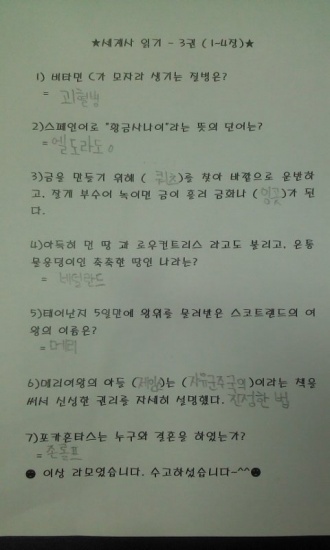 ★세계사 읽기 - 3권 (1-4장)★
1) 비타민 C가 모자라 생기는 질병은?
= 괴혈병
2)스페인어로 "황금사나이"라는 뜻의 단어는?
=엘도라도。
3)금을 만들기 위해 ( 퀴즈)를 찾아 바깥으로 운반하
고, 잘게 부수어 녹이면 금이 흘러 금화나 ( )가 된
다.
4)아득히 먼 땅 과 로우컨트리스 라고도 불리고, 온통
물웅덩이인 축축한 땅인 나라는?
= 네덜란드
5)태어난지 5일만에 왕위를 물려받은 스코트랜드의 여
왕의 이름은?
=메리
6)메리여왕의 아들 (제임스)는 (자유군주국의)이라는 책을
써서 신성한 권리를 자세히 설명했다. 진정한 법
7)포카혼타스는 누구와 결혼을 하였는가?
=존롤프
● 이상 라모였습니다. 수고하셨습니다~^^●